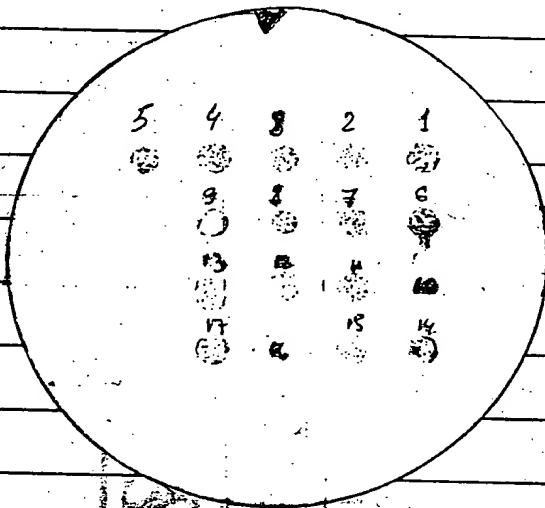 5 4 3 2 1
9 8 7 6
13 12 11 10
17 16 15 14